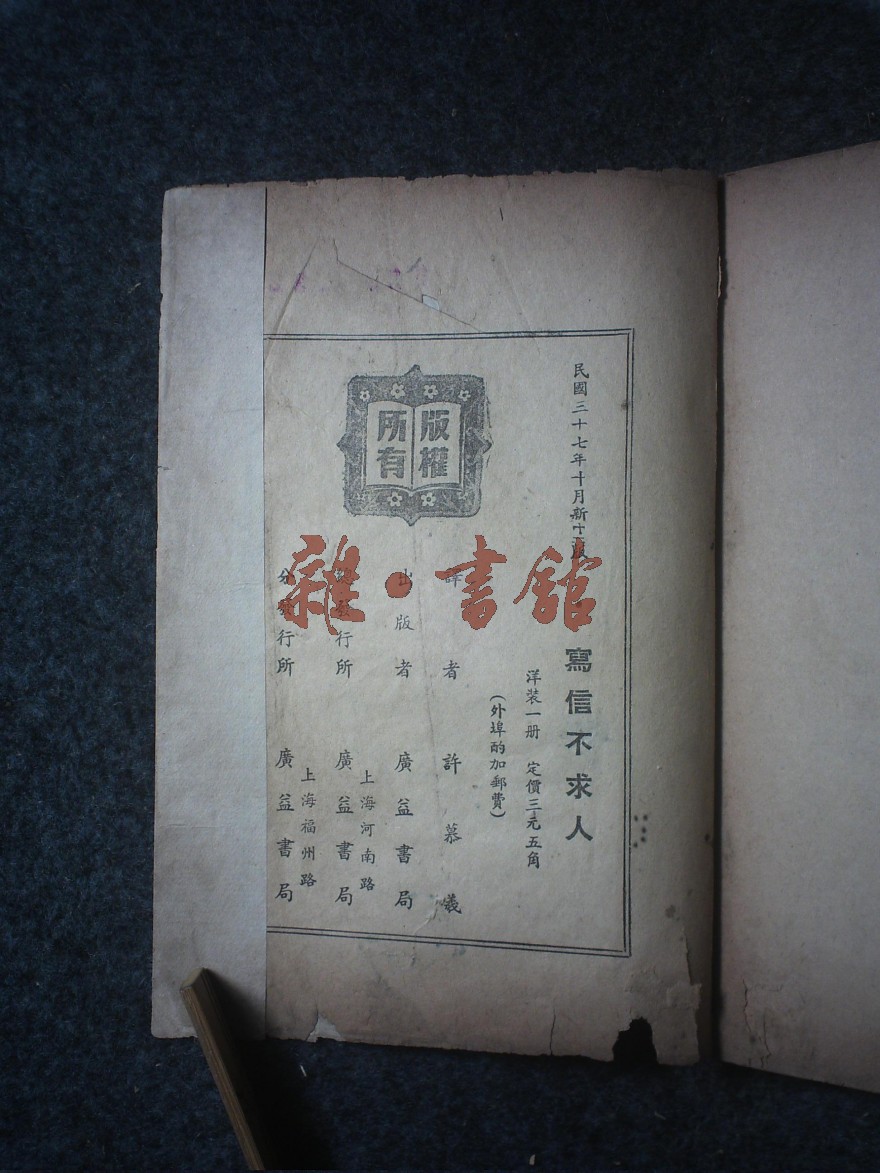 民國三十七年十月新十版
寫信不求人
洋裝一册 定價三元五角
(外埠酌加郵費)
版權
所有
譯者 許慕羲
出版者 廣益書局
上海河南路
發行所 廣益書局
上海福州路
分發行所 廣益書局
雜·書館